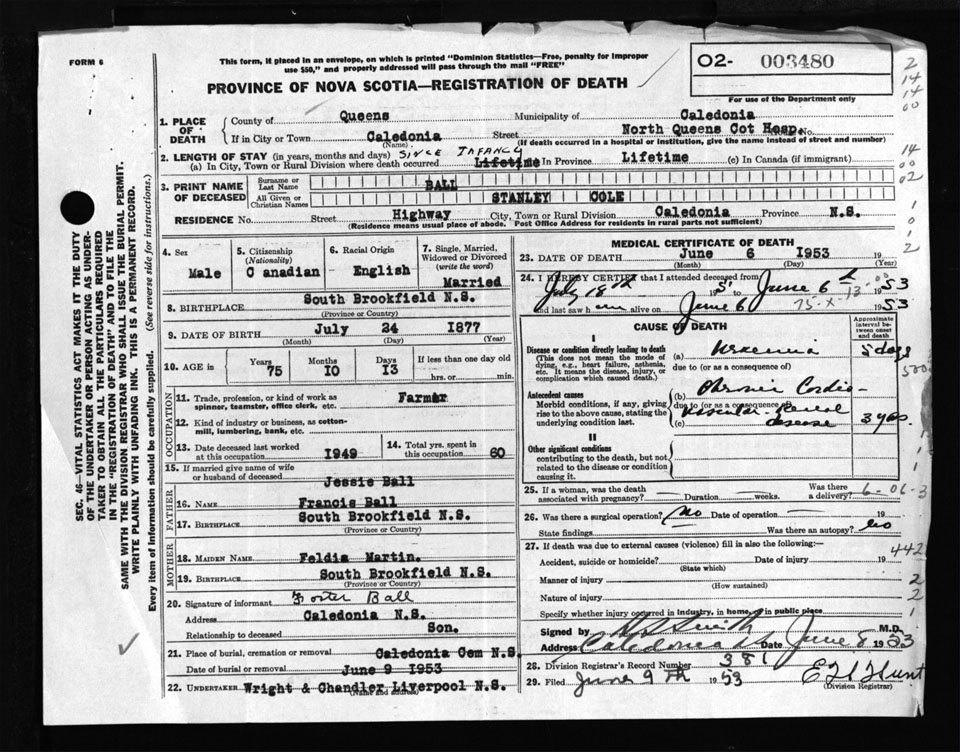 FORM 6
This form, if placed in an envelope, on which is printed "Dominion Statistics—Free, penalty for improper
use $50," and properly addressed will pass through the mail "FREE"
PROVINCE OF NOVA SCOTIA—REGISTRATION OF DEATH
O2- 003480
For use of the Department only
1. PLACE OF DEATH
County of Queens Municipality of Caledonia
If in City or Town Caledonia Street North Queens Cot Hosp. No.
(Name) (If death occurred in a hospital or institution, give the name instead of street and number)
2. LENGTH OF STAY (in years, months and days) SINCE INFANCY
(a) In City, Town or Rural Division where death occurred Lifetime In Province Lifetime (c) In Canada (if immigrant)
3. PRINT NAME OF DECEASED
Surname or Last Name BALL
All Given or Christian Names STANLEY COLE
RESIDENCE No. Street Highway City, Town or Rural Division Caledonia Province N.S.
(Residence means usual place of abode. Post Office Address for residents in rural parts not sufficient)
4. Sex Male
5. Citizenship (Nationality) Canadian
6. Racial Origin English
7. Single, Married, Widowed or Divorced (write the word) Married
8. BIRTHPLACE South Brookfield N.S.
(Province or Country)
9. DATE OF BIRTH July 24 1877
(Month) (Day) (Year)
10. AGE in Years 75 Months 10 Days 13 If less than one day old hrs. or min.
OCCUPATION
11. Trade, profession, or kind of work as spinner, teamster, office clerk, etc. Farmer
12. Kind of industry or business, as cotton-mill, lumbering, bank, etc.
13. Date deceased last worked at this occupation 1949
14. Total yrs. spent in this occupation 60
15. If married give name of wife or husband of deceased Jessie Ball
FATHER
16. Name Francis Ball
17. Birthplace South Brookfield N.S.
(Province or Country)
MOTHER
18. Maiden Name Feldia Martin.
19. Birthplace South Brookfield N.S.
(Province or Country)
20. Signature of informant Foster Ball
Address Caledonia N.S.
Relationship to deceased Son.
21. Place of burial, cremation or removal Caledonia Cem N.S.
Date of burial or removal June 9 1953
22. UNDERTAKER Wright & Chandler Liverpool N.S.
(Name and address)
MEDICAL CERTIFICATE OF DEATH
23. DATE OF DEATH June 6 1953
(Month) (Day) (Year)
24. I HEREBY CERTIFY that I attended deceased from
July 18th to June 6 1953
and last saw h alive on June 6 1953
75-x-13
CAUSE OF DEATH
Approximate interval between onset and death
I
Disease or condition directly leading to death
(This does not mean the mode of dying, e.g., heart failure, asthenia, etc. It means the disease, injury, or complication which caused death.)
(a) Uraemia 5 days
due to (or as a consequence of)
Antecedent causes
Morbid conditions, if any, giving rise to the above cause, stating the underlying condition last.
(b) Chronic Cardio-
due to (or as a consequence of)
(c) vascular-Renal disease 3 yrs.
II
Other significant conditions
contributing to the death, but not related to the disease or condition causing it.
25. If a woman, was the death associated with pregnancy? Duration weeks. Was there a delivery?
6-06-3
26. Was there a surgical operation? No Date of operation 19
State findings Was there an autopsy? No
27. If death was due to external causes (violence) fill in also the following:—
442
Accident, suicide or homicide? Date of injury 19
(State which)
Manner of injury
(How sustained)
Nature of injury
Specify whether injury occurred in industry, in home, or in public place
Signed by Smith M.D.
Address Caledonia Date June 8 1953
28. Division Registrar's Record Number 381
29. Filed June 9th 1953 Hunt
(Division Registrar)
SEC. 46—VITAL STATISTICS ACT MAKES IT THE DUTY
OF THE UNDERTAKER OR PERSON ACTING AS UNDER-
TAKER TO OBTAIN ALL THE PARTICULARS REQUIRED
IN THE "REGISTRATION OF DEATH" AND TO FILE THE
SAME WITH THE DIVISION REGISTRAR WHO SHALL ISSUE THE BURIAL PERMIT.
WRITE PLAINLY WITH UNFADING INK. THIS IS A PERMANENT RECORD.
Every item of Information should be carefully supplied. (See reverse side for instructions.)
2
14
14
00
14
00
02
1
0
1
2